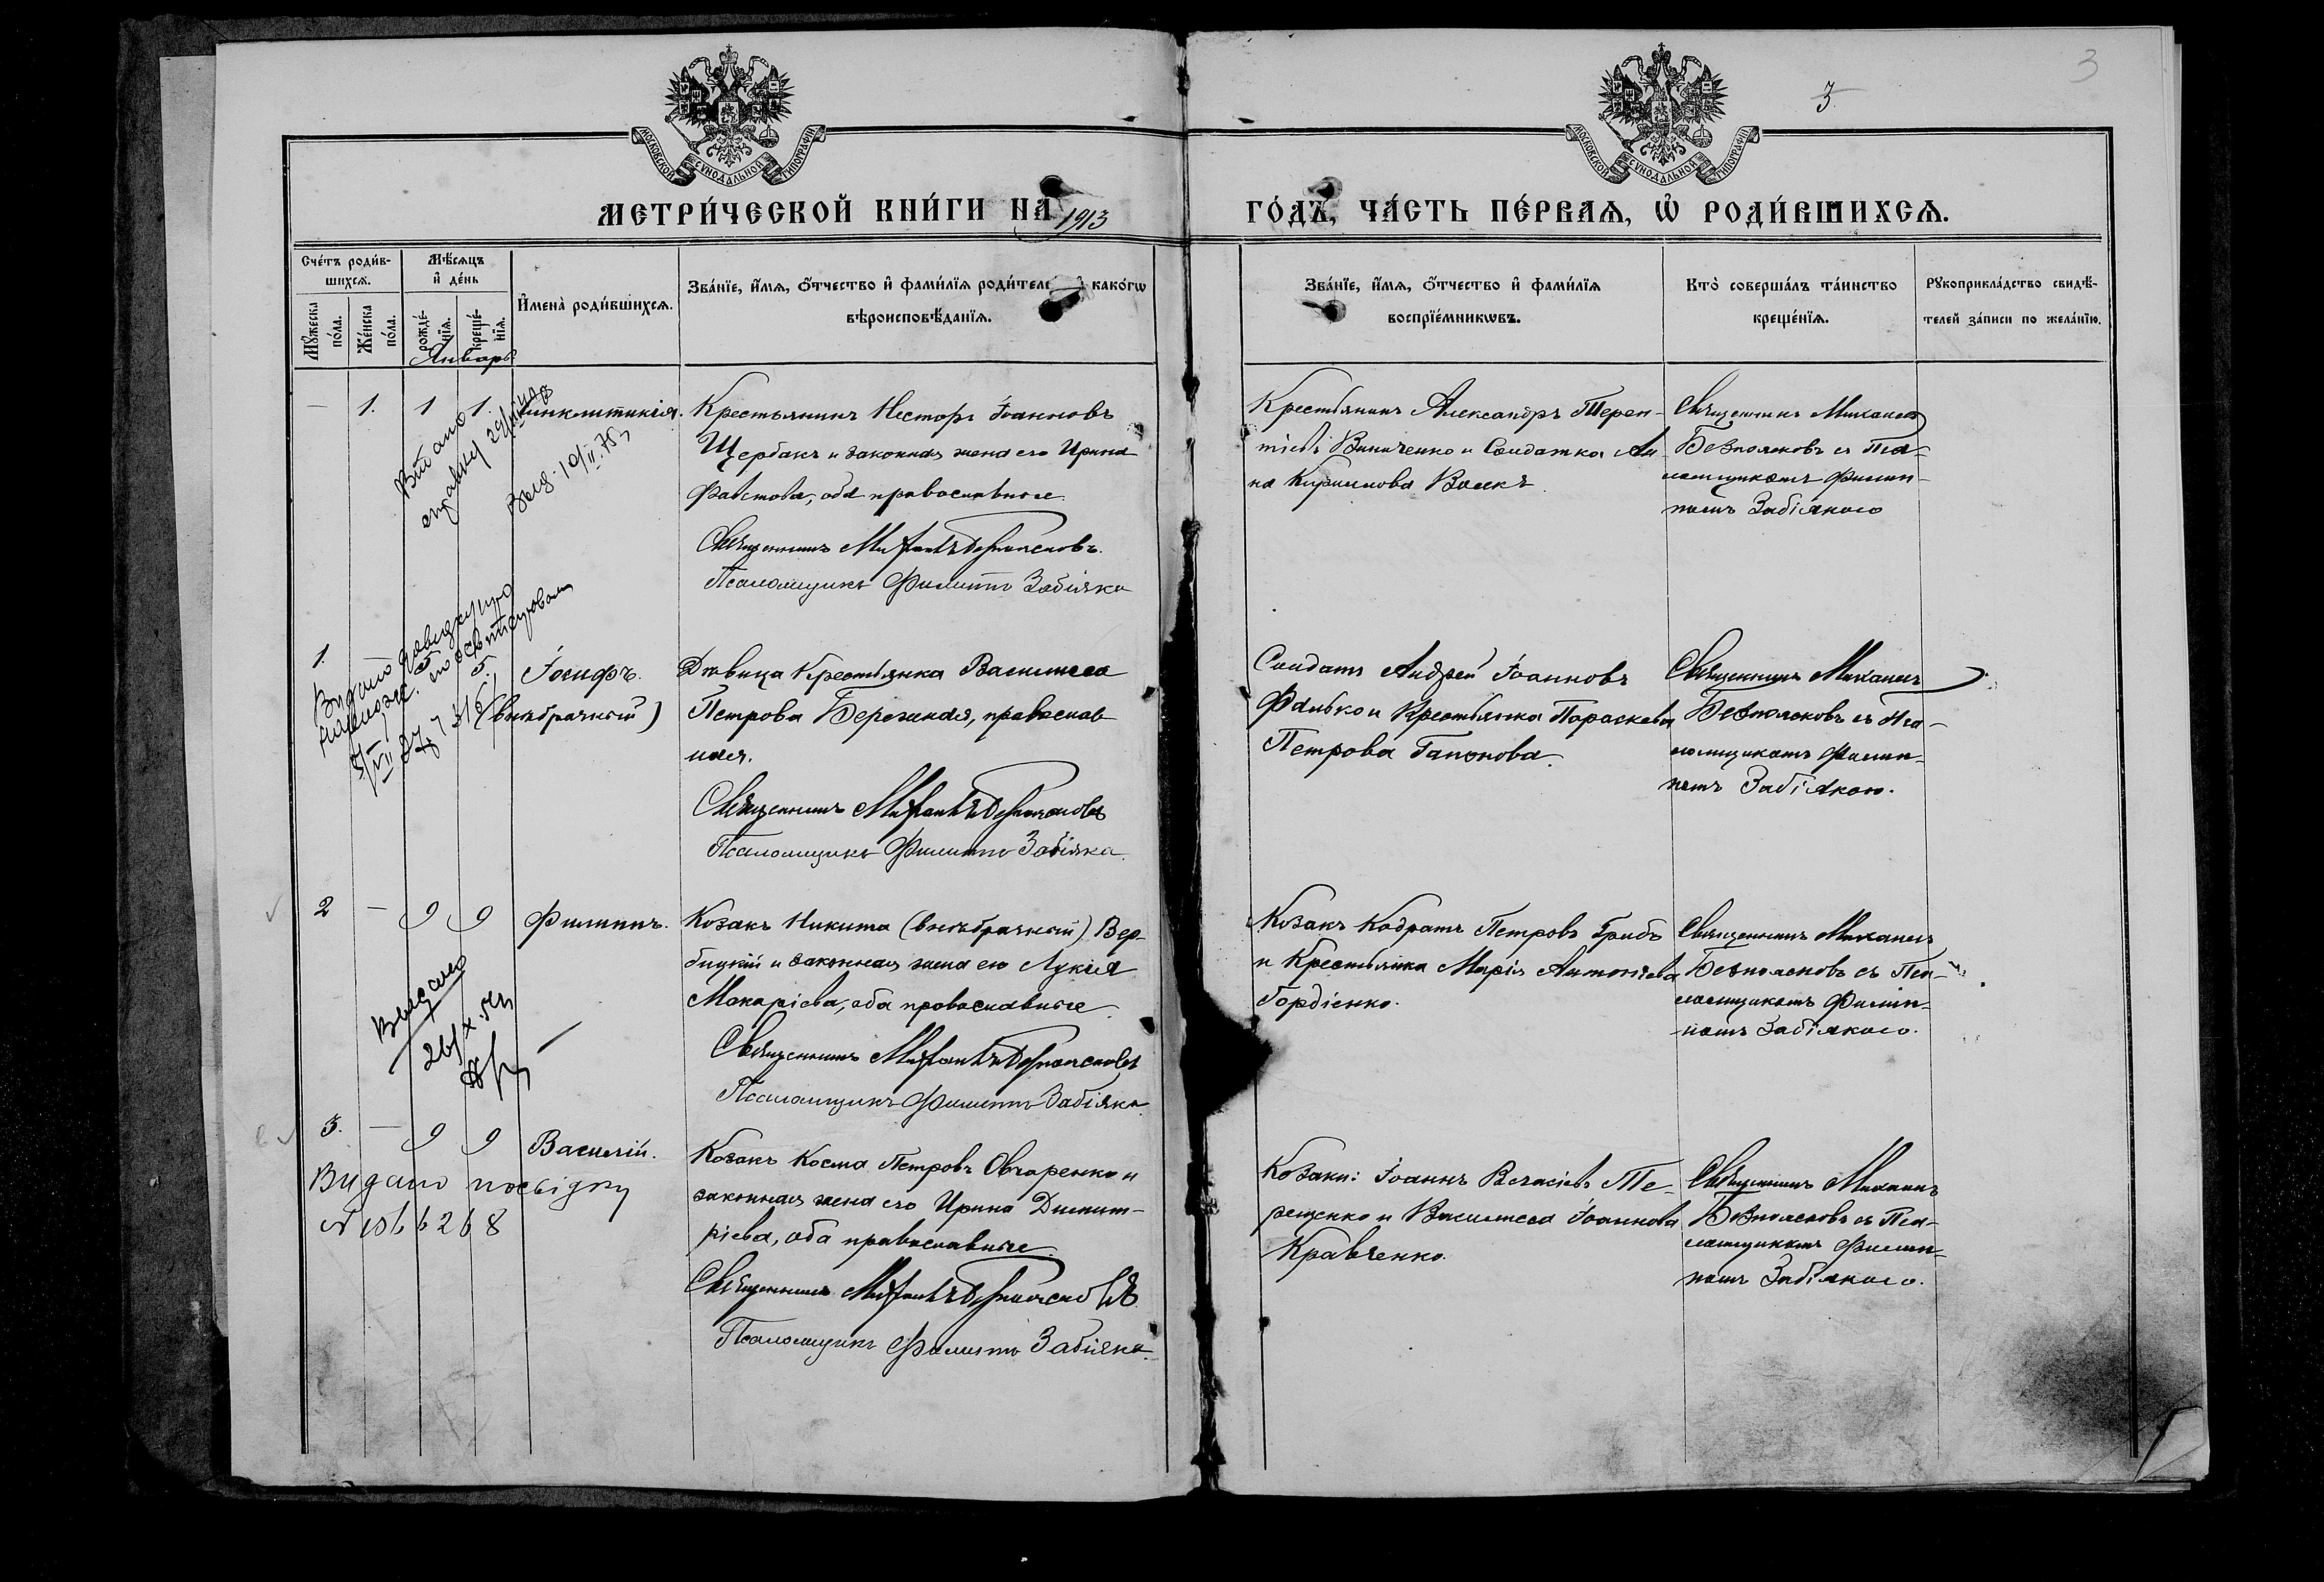 3
3
МОСКОВСКОЙ СѴНОДАЛЬНОЙ ТИПОГРАФІИ
МОСКОВСКОЙ СѴНОДАЛЬНОЙ ТИПОГРАФІИ
МЕТРИ́ЧЕСКОЙ КНИ́ГИ НА 1913
ГО́ДЪ, ЧА́СТЬ ПЕ́РВАѦ, Ѡ҆ РОДИ́ВШИХСѦ.
Сче́тъ роди́в-
шихсѧ.
Мꙋ́жеска
по́ла.
Же́нска
по́ла.
Мѣ́сѧцъ
и҆ де́нь
рожде́-
нїѧ.
креще́-
нїѧ.
И҆мена̀ роди́вшихсѧ.
Зва́нїе, и҆́мѧ, ѻ҆́тчество и҆ фами́лїѧ роди́теле како́гѡ
вѣроисповѣ́данїѧ.
Зва́нїе, и҆́мѧ, ѻ҆́тчество и҆ фами́лїѧ
воспрїе́мникѡвъ.
Кто̀ соверша́лъ та́инство
креще́нїѧ.
Рꙋкоприкла́дство свидѣ́-
телей за́писи по жела́нїю.
Январь
— 1. 1 1. Синклитикія.
Крестьянинъ Несторъ Іоанновъ
Щербакъ и законная жена его Ирина
Фавстова, оба православные.
Священникъ Михаилъ Безпоясковъ.
Псаломщикъ Филиппъ Забіяка
Крестьянинъ Александръ Терен-
тіевъ Винниченко и Солдатка Ан-
на Кириллова Волкъ.
Священникъ Михаилъ
Безпоясковъ съ Пса-
ломщикомъ Филип-
помъ Забіякою
1. — 5 5. Іосифъ.
(внѣбрачный)
Дѣвица Крестьянка Василисса
Петрова Бережная, православ
ная.
Священникъ Михаилъ Безпоясковъ
Псаломщикъ Филиппъ Забіяка.
Солдатъ Андрей Іоанновъ
Фалько и Крестьянка Параскева
Петрова Гапонова.
Священникъ Михаилъ
Безпоясковъ съ Пса-
ломщикомъ Филип-
помъ Забіякою.
2 — 9 9 Филиппъ.
Козакъ Никита (внѣбрачный) Вер-
бицкій и законная жена его Лукія
Макаріева, оба православные.
Священникъ Михаилъ Безпоясковъ
Псаломщикъ Филиппъ Забіяка.
Козакъ Кодратъ Петровъ Грибъ
и Крестьянка Марія Антоніева
Гордіенко.
Священникъ Михаилъ
Безпоясковъ съ Пса-
ломщикомъ Филип-
помъ Забіякою.
Выдано
3. — 9 9 Василій.
Видано посвідку
N 1066268
Козакъ Косма Петровъ Овчаренко и
законная жена его Ирина Димит-
ріева, оба православные.
Священникъ Михаилъ Безпоясковъ.
Псаломщикъ Филиппъ Забіяка.
Козаки: Іоаннъ Власіевъ Те-
рещенко и Василисса Іоаннова
Кравченко.
Священникъ Михаилъ
Безпоясковъ съ Пса-
ломщикомъ Филип-
помъ Забіякою.